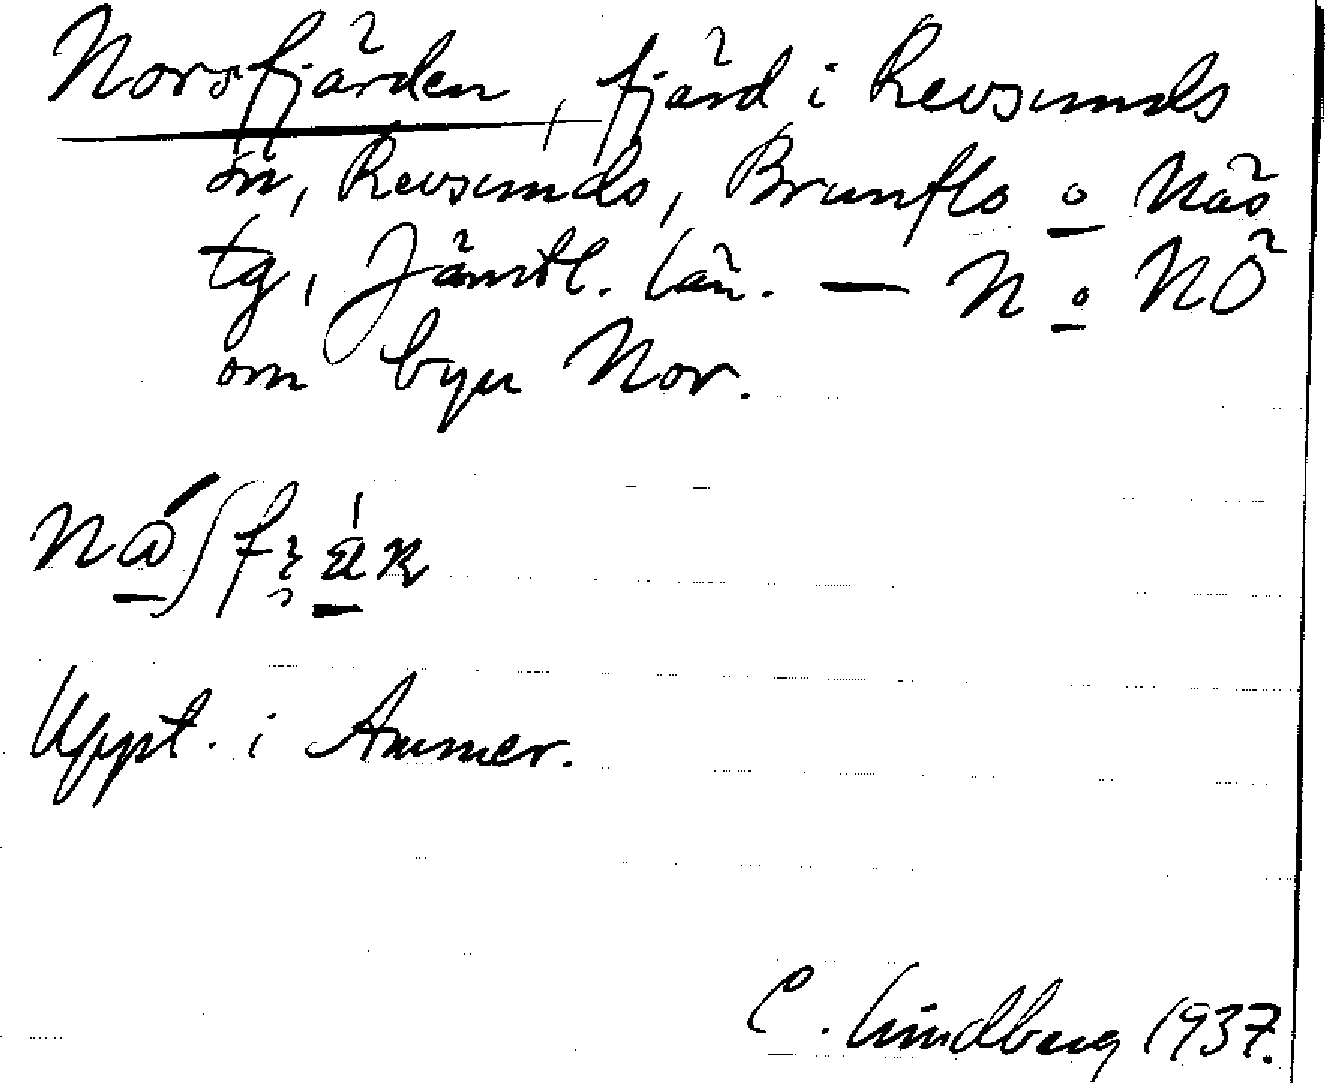 Norsfjärden, fjärd i Revsunds
ön, Revsunds, Brunflo o Näs
tg, Jämtl. län. — N o NÖ
om byn Nor.
Uppt. i Ammer.
C. Lindberg 1937.